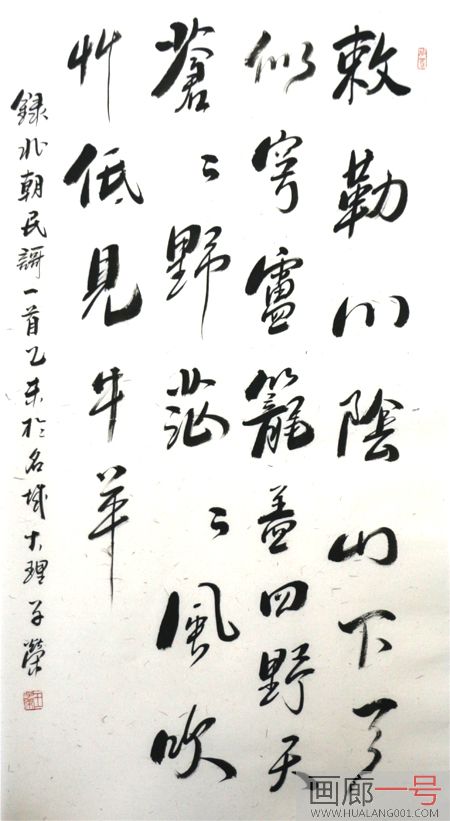 敕勒川陰山下天
似穹盧籠盖四野天
蒼〻野茫〻風吹
艸低見牛羊
録北朝民謌一首乙未於名城大理子榮
画廊一号
WWW.HUALANG001.COM